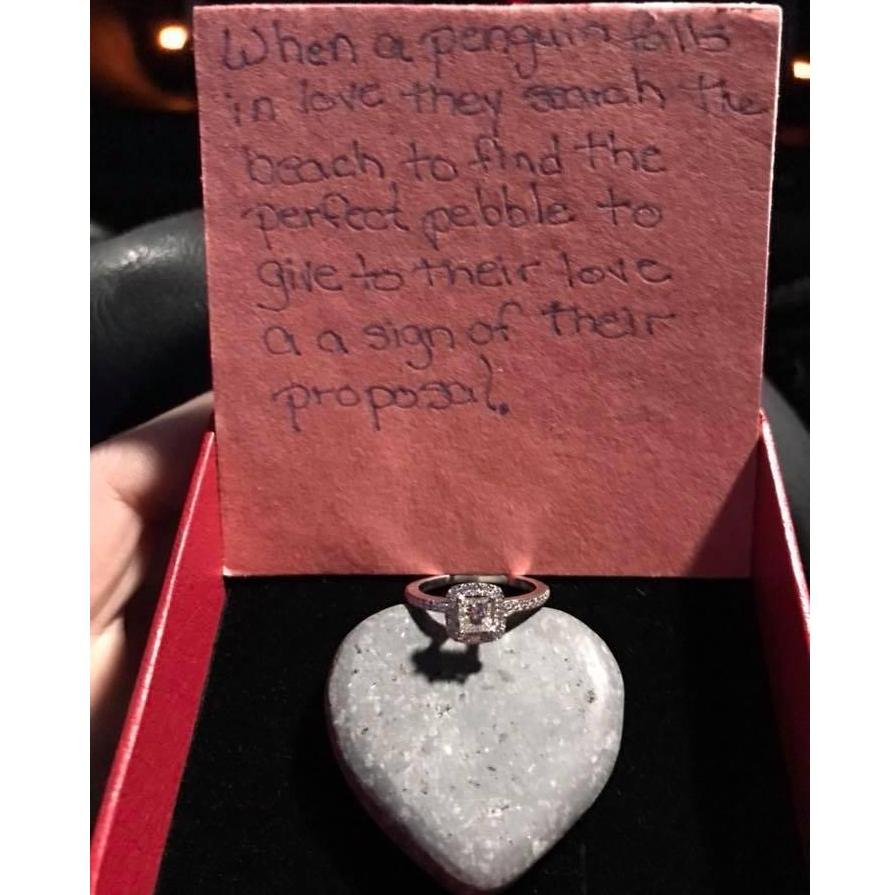 When a penguin falls
in love they search the
beach to find the
perfect pebble to
give to their love
a a sign of their
proposal.